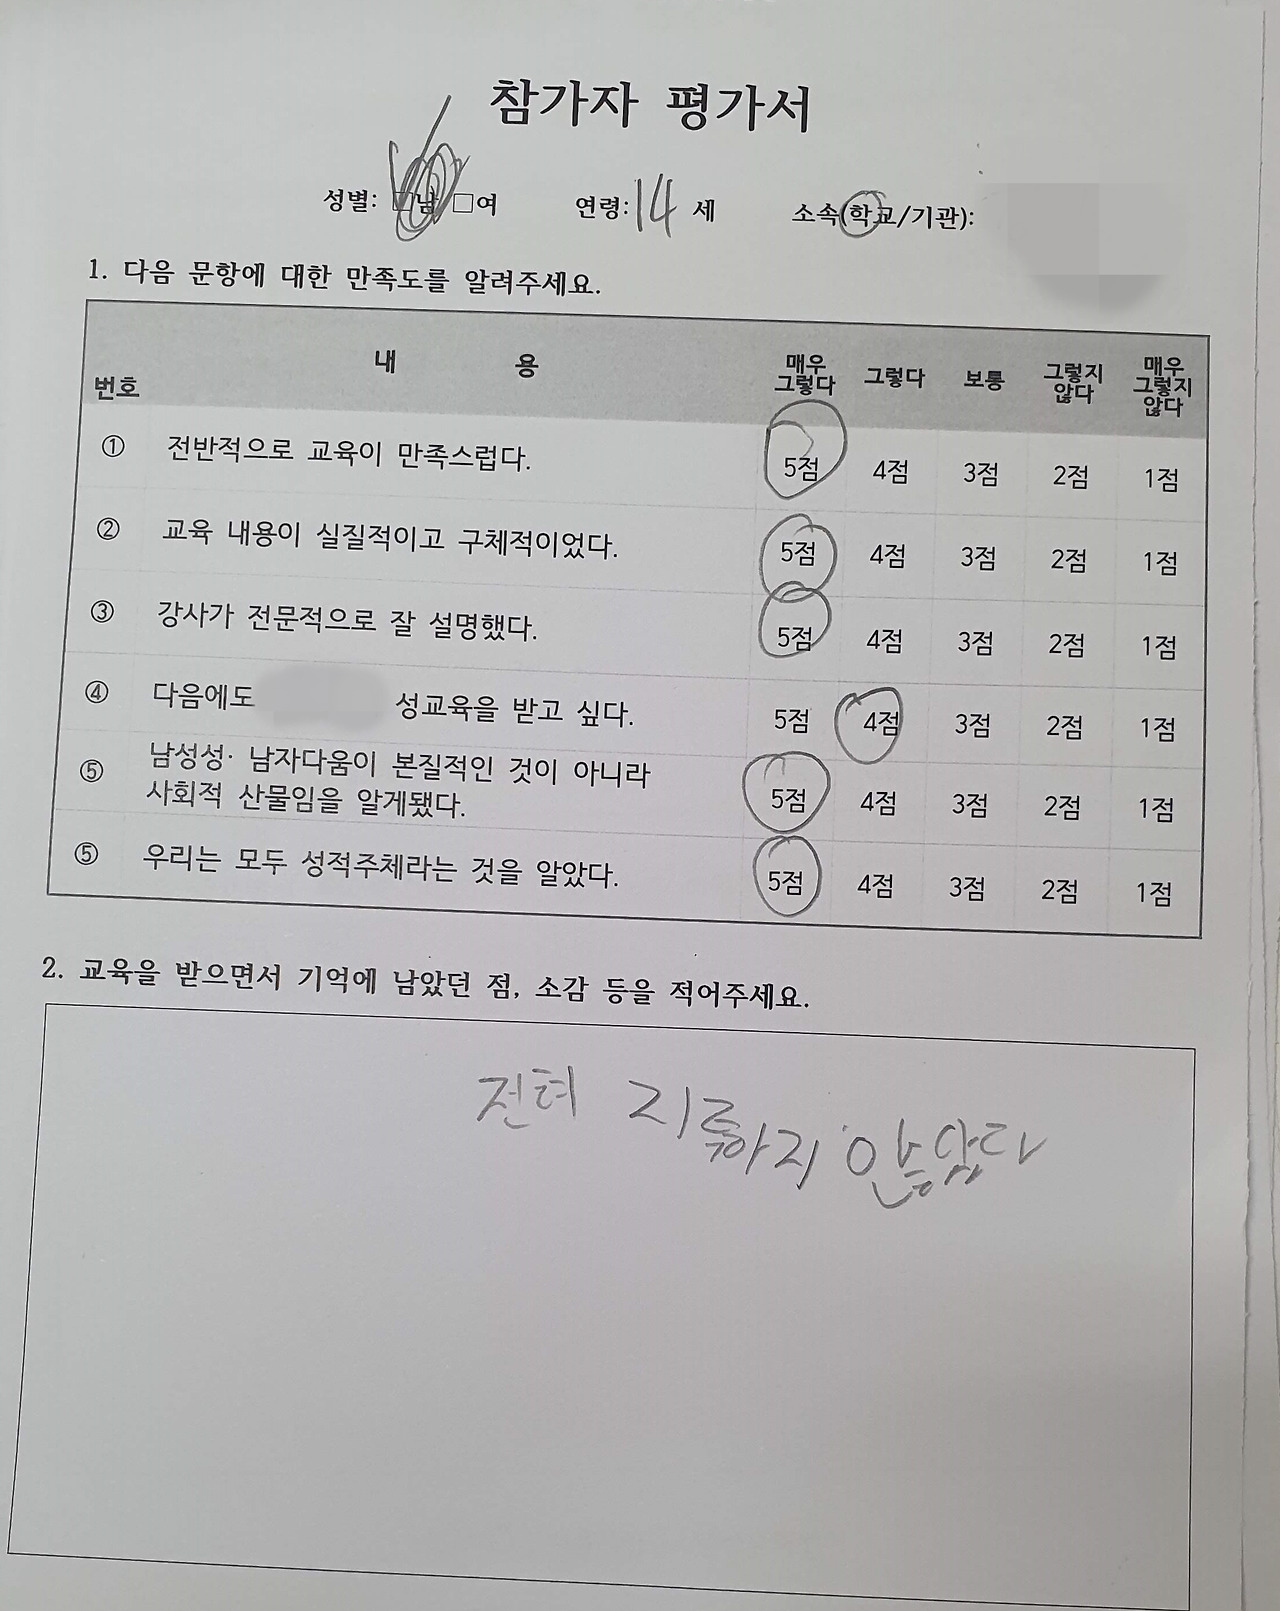 참가자 평가서
성별: □남 □여 연령: 14 세 소속(학교/기관):
1. 다음 문항에 대한 만족도를 알려주세요.
번호 내 용 매우 그렇다 그렇다 보통 그렇지 않다 매우 그렇지 않다
① 전반적으로 교육이 만족스럽다. 5점 4점 3점 2점 1점
② 교육 내용이 실질적이고 구체적이었다. 5점 4점 3점 2점 1점
③ 강사가 전문적으로 잘 설명했다. 5점 4점 3점 2점 1점
④ 다음에도 성교육을 받고 싶다. 5점 4점 3점 2점 1점
⑤ 남성성· 남자다움이 본질적인 것이 아니라
사회적 산물임을 알게됐다. 5점 4점 3점 2점 1점
⑤ 우리는 모두 성적주체라는 것을 알았다. 5점 4점 3점 2점 1점
2. 교육을 받으면서 기억에 남았던 점, 소감 등을 적어주세요.
전혀 지루하지